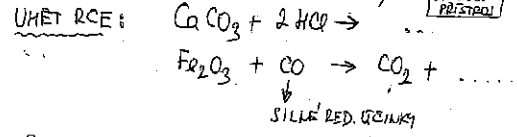 PŘÍSTROJ
UMĚT RCE: CaCO₃ + 2 HCl → ...
Fe₂O₃ + CO → CO₂ + .....
SILNÉ RED. ÚČINKY